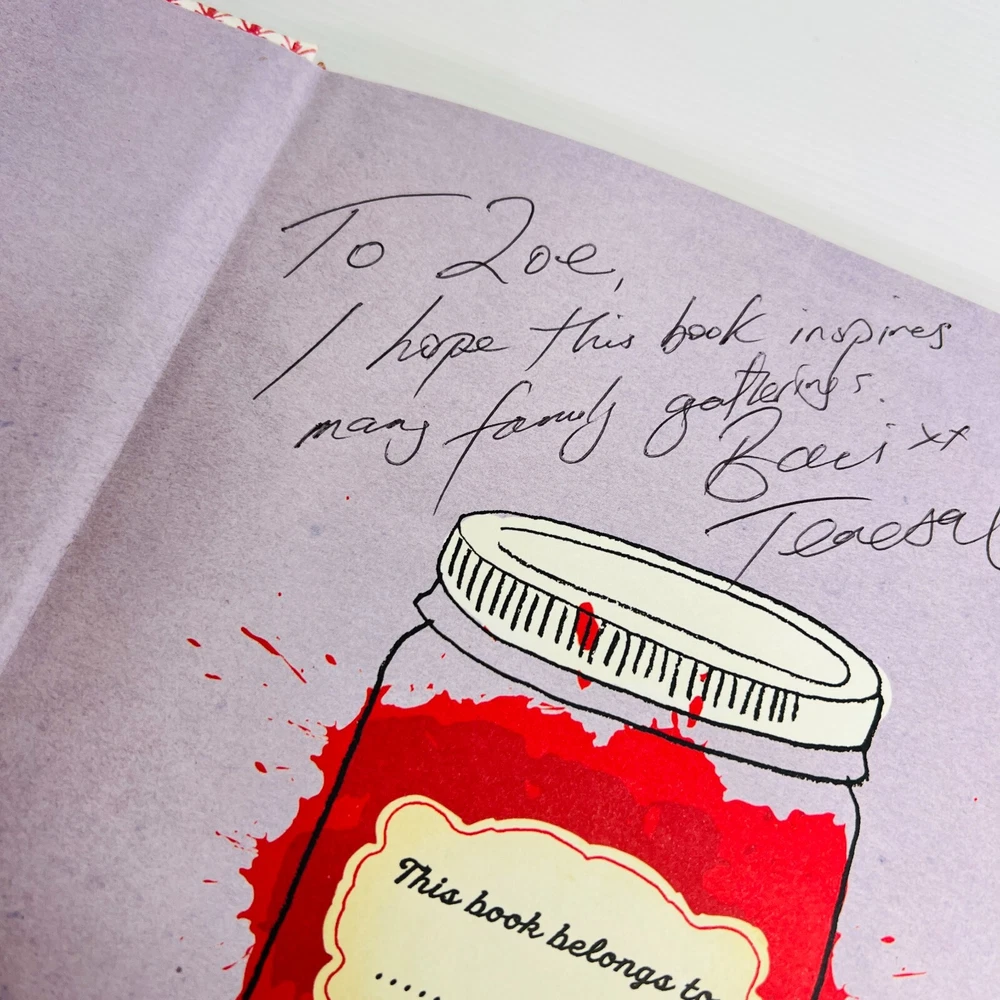 To Zoe,
I hope this book inspires
many family gatherings.
Baci xx
Teresa
This book belongs to
.....